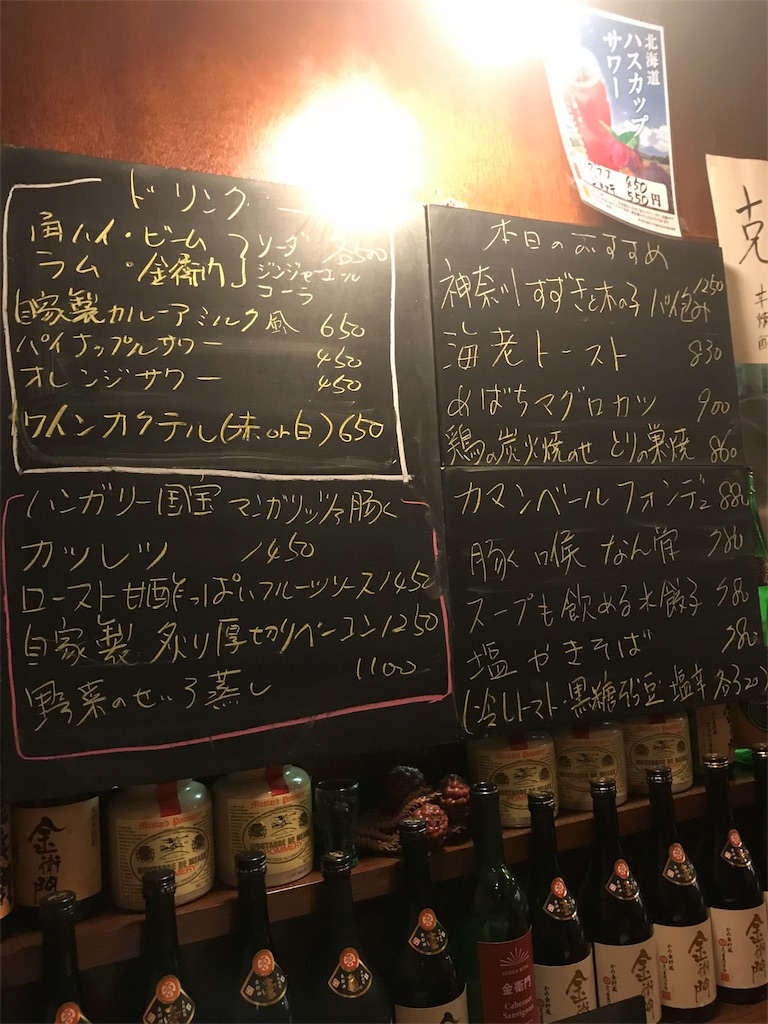 ドリンク
角ハイ・ビーム
ラム・金衛門
ソーダ 各500
ジンジャーエール
コーラ
自家製カルーアミルク風 650
パイナップルサワー 450
オレンジサワー 450
ワインカクテル(赤or白) 650
ハンガリー国宝 マンガリッツァ豚
カツレツ 1450
ロースト甘酢っぱいフルーツソース 1450
自家製 炙り厚切りベーコン 1250
野菜のせいろ蒸し 1100
本日のおすすめ
神奈川 すずきと木の子 パイ包み 1250
海老トースト 830
めばちマグロカツ 900
鶏の炭火焼のせ とりの巣焼 860
カマンベールフォンデュ 880
豚 喉なん骨 780
スープも飲める水餃子 580
塩やきそば 780
(冷しトマト・黒糖そら豆・塩辛 各320)
北海道
ハスカップ
サワー
450
550円
克
金衛門
Mustard Pommery
MOUTARDE DE MEAUX
POMMERY
Mustard Pommery
MOUTARDE DE MEAUX
POMMERY
金衛門
Cabernet
Sauvignon
金衛門
金衛門
金衛門
金衛門